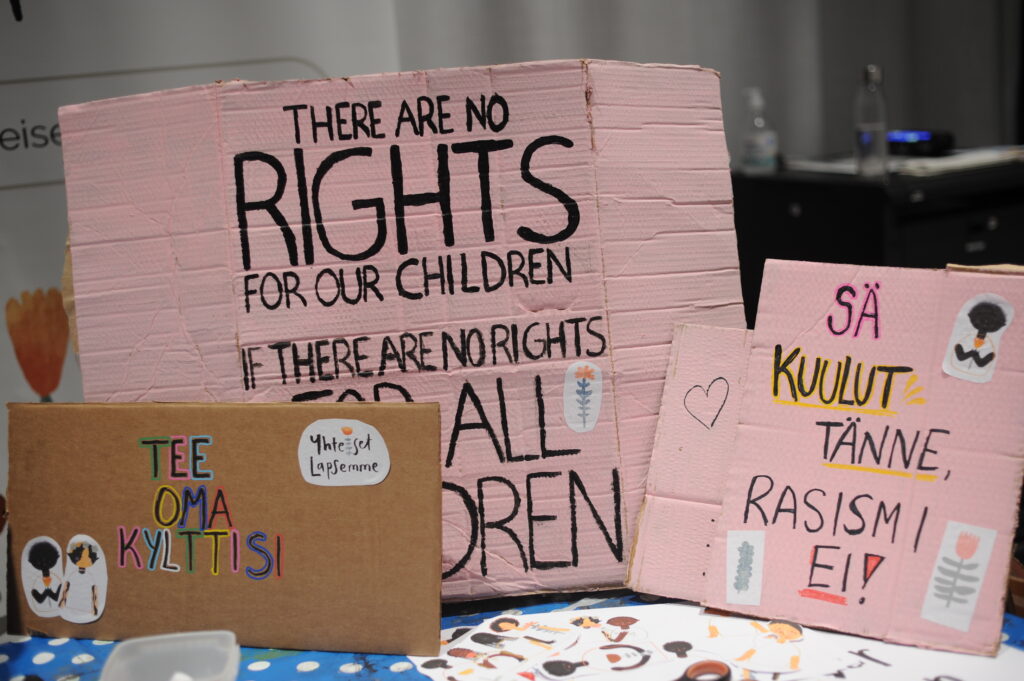 THERE ARE NO
RIGHTS
FOR OUR CHILDREN
IF THERE ARE NO RIGHTS
FOR ALL
TEE
OMA
KYLTTISI
Yhteiset
Lapsemme
SÄ
KUULUT
TÄNNE,
RASISMI
EI!